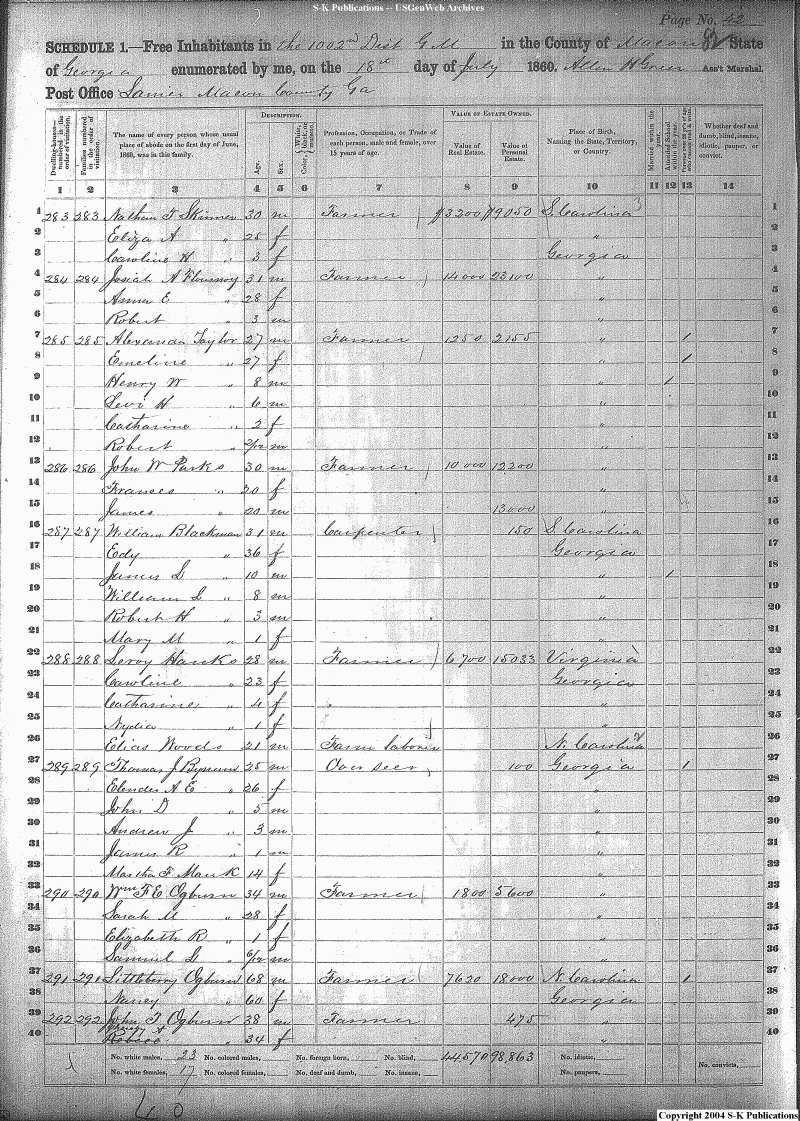 S-K Publications -- USGenWeb Archives
Page No. 42
SCHEDULE 1.—Free Inhabitants in the 1002nd Dist G. M in the County of Macon State
of Georgia enumerated by me, on the 18th day of July 1860. Ass't Marshal.
Post Office Lanier Macon County Ga
Dwelling-houses—numbered in the order of visitation.
Families numbered in the order of visitation.
The name of every person whose usual place of abode on the first day of June, 1860, was in this family.
DESCRIPTION.
Age.
Sex.
Color, White, black, or mulatto.
Profession, Occupation, or Trade of each person, male and female, over 15 years of age.
VALUE OF ESTATE OWNED.
Value of Real Estate.
Value of Personal Estate.
Place of Birth, Naming the State, Territory, or Country.
Married within the year.
Attended School within the year.
Persons over 20 y'rs of age who cannot read & write.
Whether deaf and dumb, blind, insane, idiotic, pauper, or convict.
1 2 3 4 5 6 7 8 9 10 11 12 13 14
1 283 283 Nathan F Skinner 30 m Farmer $3200 $9050 S. Carolina 1
2 Eliza A " 25 f " 2
3 Caroline H " 3 f Georgia 3
4 284 284 Josiah A Flournoy 31 m Farmer 14000 23100 " 4
5 Anna E " 28 f " 5
6 Robert " 3 m " 6
7 285 285 Alexander Taylor 27 m Farmer 1250 2155 " 1 7
8 Emeline " 27 f " 1 8
9 Henry W " 8 m " 1 9
10 Levi H " 6 m " 10
11 Catharine " 2 f " 11
12 Robert " 2/12 m " 12
13 286 286 John W Parks 30 m Farmer 10000 12200 " 13
14 Frances " 20 f " 14
15 James " 20 m 13000 " 15
16 287 287 William Blackman 31 m Carpenter 150 S. Carolina 16
17 Edy " 36 f Georgia 17
18 James L " 10 m " 1 18
19 William L " 8 m " 19
20 Robert H " 3 m " 20
21 Mary M " 1 f " 21
22 288 288 Leroy Hanks 28 m Farmer 6700 15033 Virginia 22
23 Caroline " 23 f Georgia 23
24 Catharine " 4 f " 24
25 Nydia " 1 f " 25
26 Elias Woods 21 m Farm laborer N. Carolina 26
27 289 289 Thomas J 25 m Over seer 100 Georgia 1 27
28 A E " 26 f " 28
29 John D " 5 m " 29
30 Andrew J " 3 m " 30
31 James R " 1 m " 31
32 Martha F Mauk 14 f " 32
33 290 290 Wm F. E. Ogburn 34 m Farmer 1800 5600 " 33
34 Sarah M " 28 f " 34
35 Elizabeth R " 1 f " 35
36 Samuel L " 6/12 m " 36
37 291 291 Littlberry Ogburn 68 m Farmer 7620 18000 N. Carolina 1 37
38 Nancy " 60 f Georgia 38
39 292 292 John T Ogburn 28 m Farmer 475 " 39
40 " 34 f " 40
No. white males, 23 No. colored males, No. foreign born, No. blind, 44570 98,863 No. idiotic, No. convicts,
No. white females, 17 No. colored females, No. deaf and dumb, No. insane, No. paupers,
40
Copyright 2004 S-K Publications